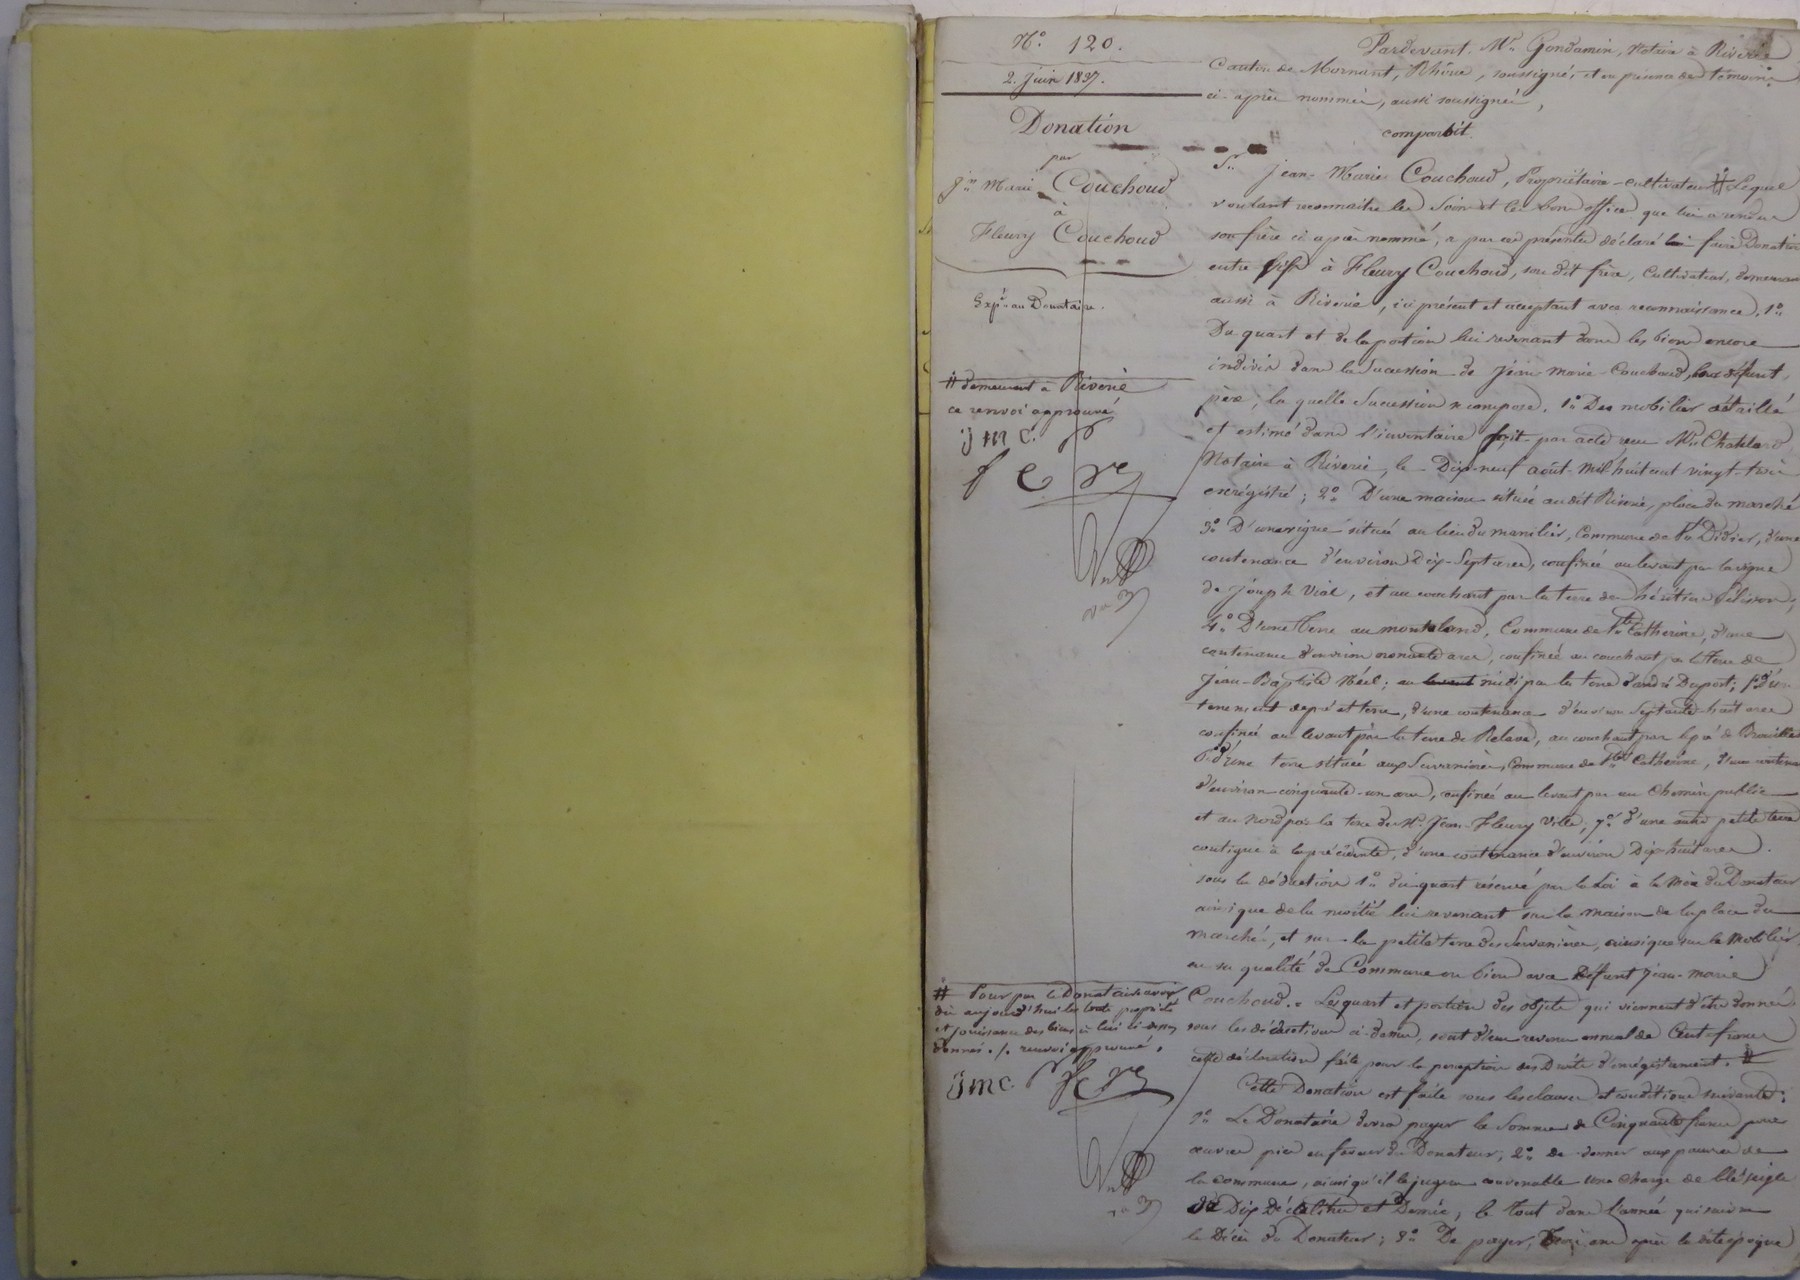 N.° 120.
2. juin 1837.
Donation
par
Jn Marie Couchoud
à
Fleury Couchoud
Expé. au Donataire.
# demeurant à Riverie
ce renvoi approuvé.
J M C.
f C
# Pour par le Donataire avoir
dès aujourd'hui la toute propriété
et jouissance des biens à lui ci-dessus
donnés ./. renvoi approuvé.
J M C. f C
Pardevant Me Gondamin, Notaire à Riverie
Canton de Mornant, Rhône, soussigné, et en présence des témoins
ci-après nommés, aussi soussignés,
comparait.
Sr Jean-Marie Couchoud, Propriétaire-cultivateur # Lequel
voulant reconnaitre les soins et les bons offices que lui a rendus
son frère ci après nommé, a par ces présentes déclaré lui faire Donation
entre vifs à Fleury Couchoud, son dit frère, Cultivateur, demeurant
aussi à Riverie, ici présent et acceptant avec reconnaissance, 1°
Du quart et de la portion lui revenant dans les biens encore
indivis dans la Succession de Jean-Marie Couchoud, leur défunt
père, la quelle Succession se compose. 1° Des mobilier détaillé
et estimé dans l'inventaire fait par acte reçu Me
Notaire à Riverie, le Dix-neuf août mil huit cent vingt-trois
enrégistré; 2° D'une maison située audit Riverie, place du marché
3° D'une vigne située au lieu du manilier, Commune de St Didier, d'une
contenance d'environ Dix-Sept ares, confinée au levant par la vigne
de Joseph Vial, et au couchant par la terre des héritiers
4° D'une Terre au , Commune de Ste Catherine, d'une
contenance d'environ nonante ares, confinée au couchant par la terre de
Jean-Baptiste ; au levant midi par la terre d'andré Duport; 5° d'un
tenement de pré et terre, d'une contenance d'environ Septante-huit ares
confinée au levant par la terre de , au couchant par le pré de
6° d'une terre située aux Servanières, Commune de Ste Catherine, d'une contenance
d'environ cinquante-un ares, confinée au levant par un chemin public
et au nord par la terre de Mr Jean-Fleury Ville; 7° d'une autre petite terre
contigue à la précédente, d'une contenance d'environ Dix-huit ares.
sous la déduction 1° du quart réservé par la Loi à la Mère du Donateur
ainsi que de la moitié lui revenant sur la maison de la place du
marché, et sur la petite terre des Servanières, ainsi que sur le Mobilier
en sa qualité de Commune en biens avec Défunt Jean-Marie
Couchoud. = Les quart et portion des objets qui viennent d'être donnés
sous les déductions ci-dessus, sont d'un revenu annuel de Cent francs
cette déclaration faite pour la perception des Droits d'enrégistrement. #
Cette Donation est faite sous les clauses et conditions suivantes:
1° Le Donataire devra payer la Somme de Cinquante francs pour
œuvres pies en faveur du Donateur; 2° de donner aux pauvres de
la commune, ainsi qu'il le jugera convenable une charge de blé seigle
de Dix Décalitres et Demie, le tout dans l'année qui suivra
le Décès du Donateur; 3° De payer, Trois ans après la dite époque